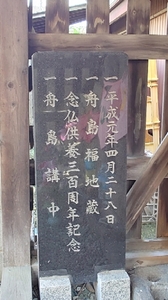 一平成元年四月二十八日
一舟島福地蔵
一念仏供養三百周年記念
一舟島講中